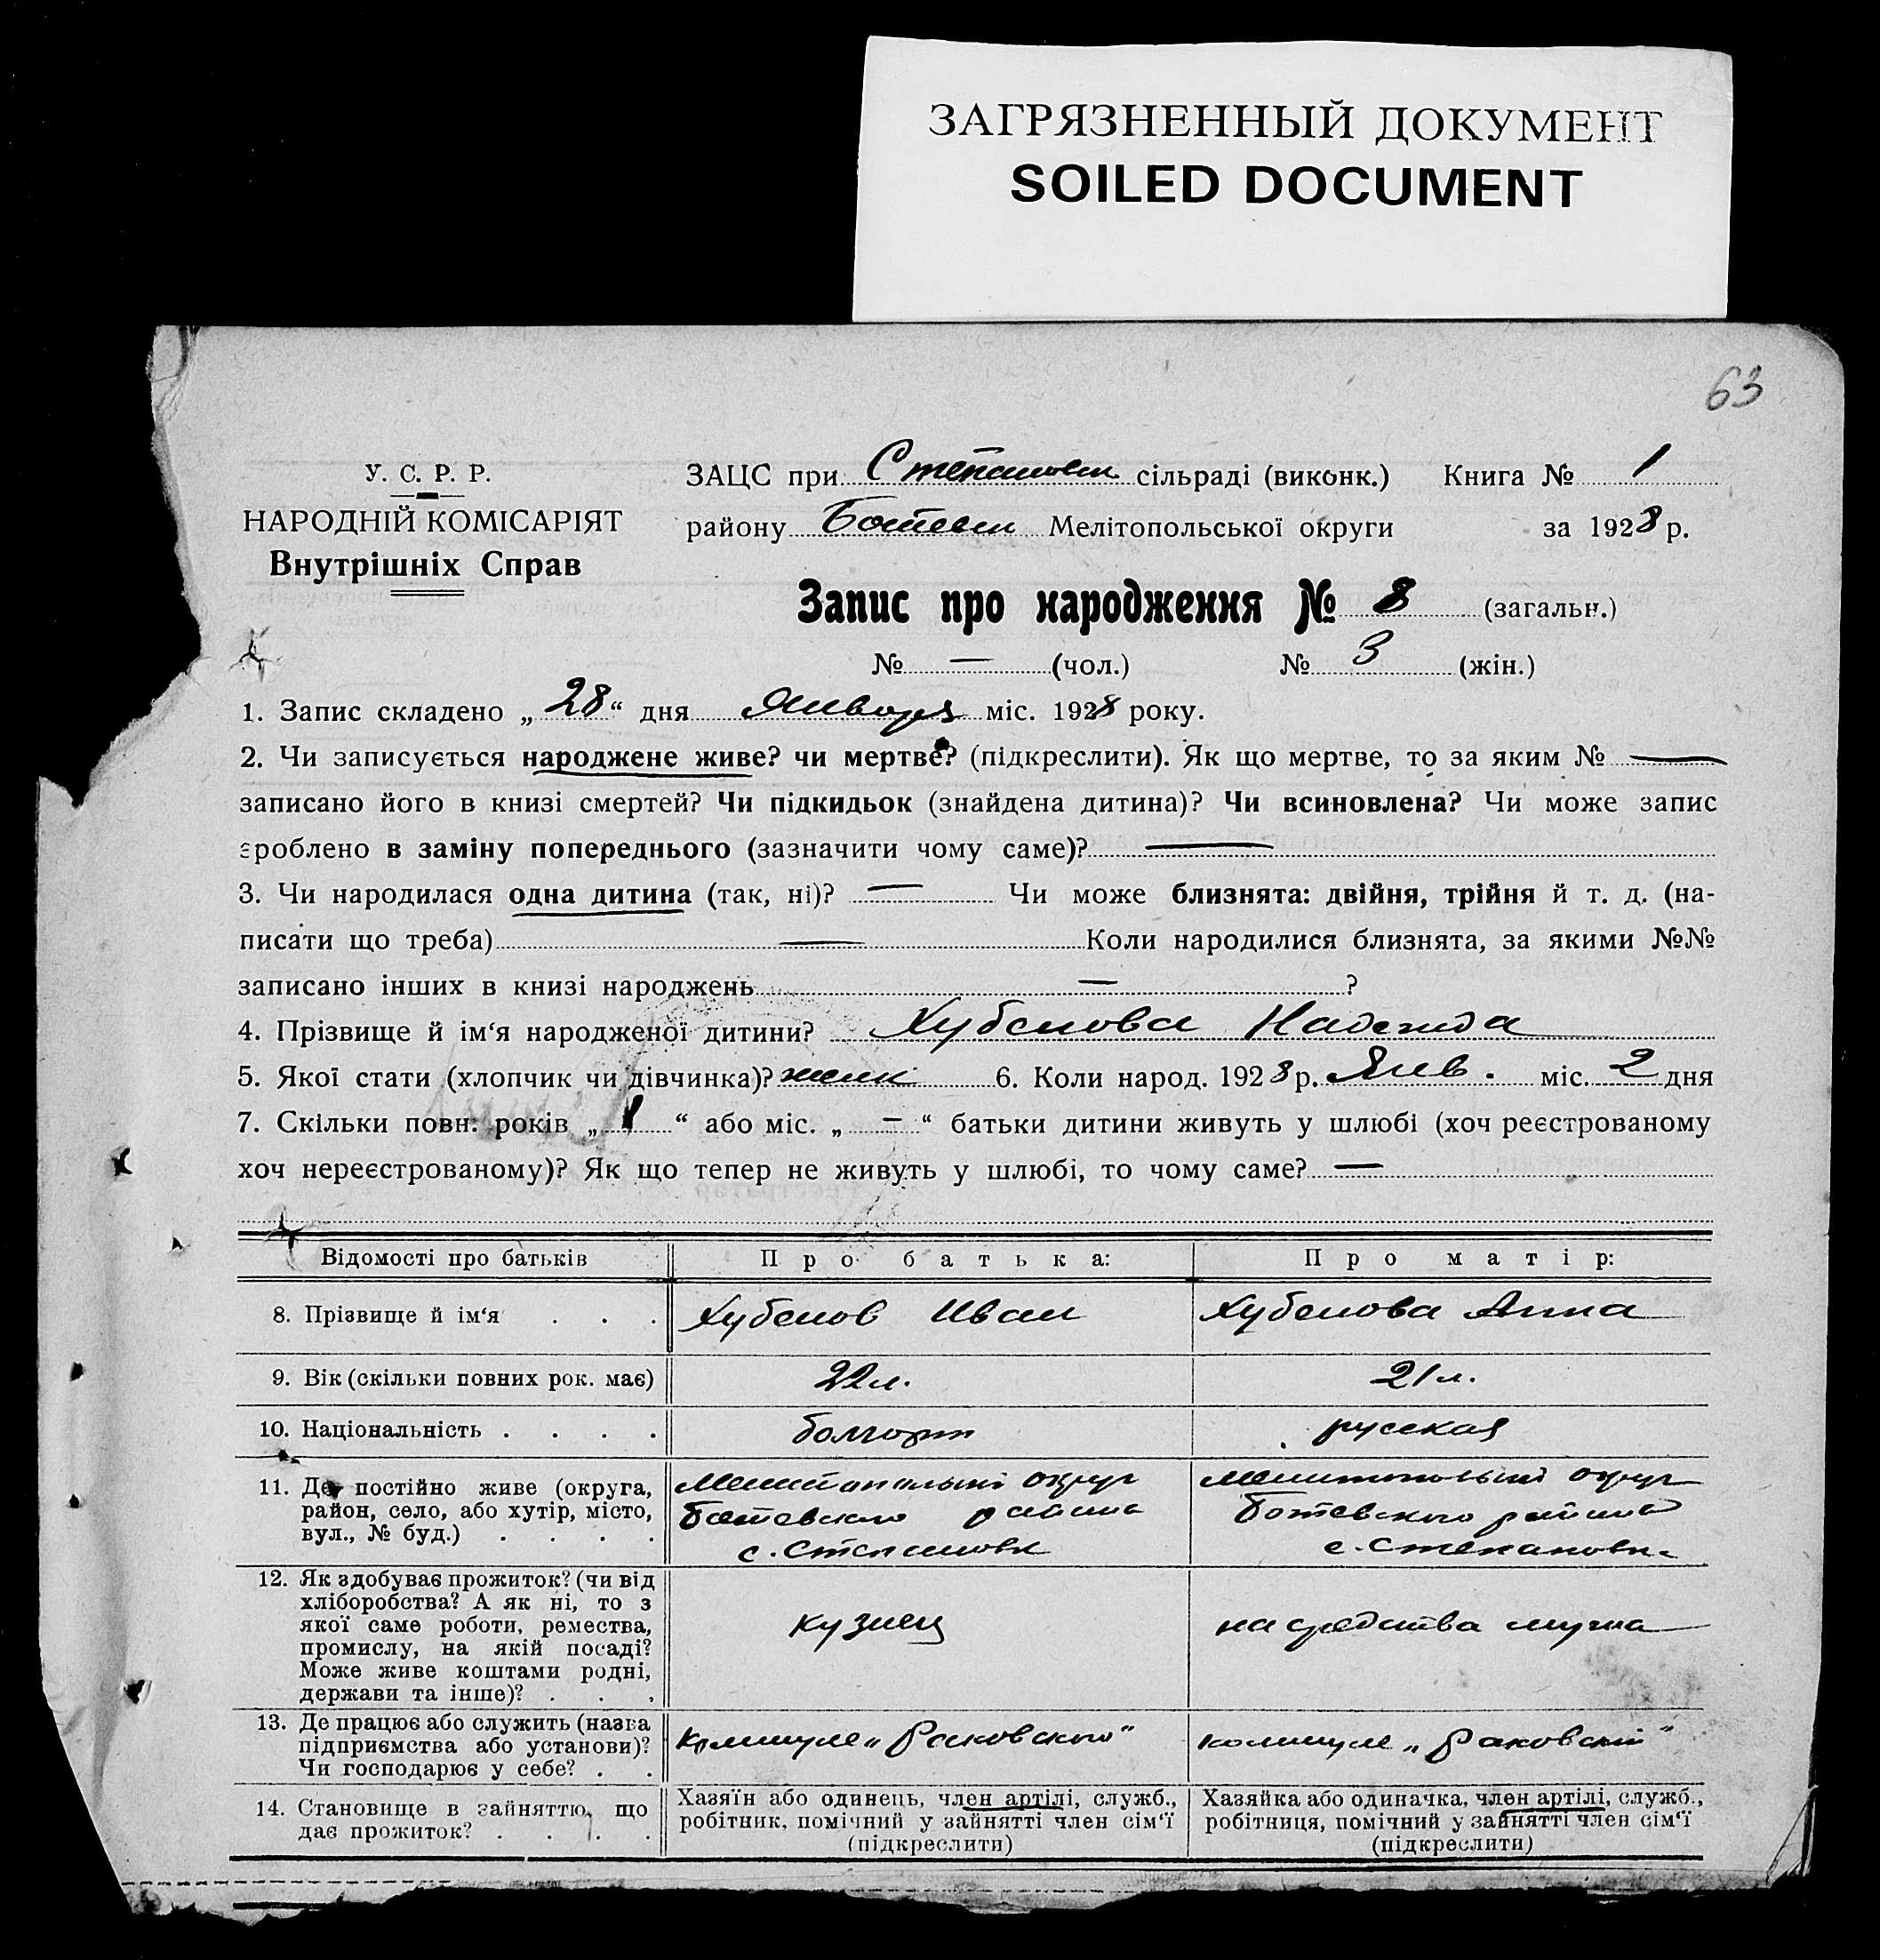 ЗАГРЯЗНЕННЫЙ ДОКУМЕНТ
SOILED DOCUMENT
63
У. С. Р. Р.
НАРОДНІЙ КОМІСАРІЯТ
Внутрішніх Справ
ЗАЦС при Степановск сільраді (виконк.) Книга № 1
району Ботевск Мелітопольської округи за 1928 р.
Запис про народження № 8 (загальн.)
№ — (чол.) № 3 (жін.)
1. Запис складено „ 28 “ дня Января міс. 1928 року.
2. Чи записується народжене живе? чи мертве? (підкреслити). Як що мертве, то за яким № —
записано його в книзі смертей? Чи підкидьок (знайдена дитина)? Чи всиновлена? Чи може запис
зроблено в заміну попереднього (зазначити чому саме)? —
3. Чи народилася одна дитина (так, ні)? — Чи може близнята: двійня, трійня й т. д. (на-
писати що треба) — Коли народилися близнята, за якими №№
записано інших в книзі народжень — ?
4. Прізвище й ім‘я народженої дитини? Хубенова Надежда
5. Якої стати (хлопчик чи дівчинка)? женск 6. Коли народ. 1928 р. Янв. міс. 2 дня
7. Скільки повн. років „ 1 “ або міс. „ — “ батьки дитини живуть у шлюбі (хоч реєстрованому
хоч нереєстрованому)? Як що тепер не живуть у шлюбі, то чому саме? —
Відомості про батьків Про батька: Про матір:
8. Прізвище й ім‘я . . . Хубенов Иван Хубенова Анна
9. Вік (скільки повних рок. має) 22 л. 21 л.
10. Національність . . . . болгарин русская
11. Де постійно живе (округа,
район, село, або хутір, місто,
вул., № буд.) . . . .
Мелитопольский округ
Ботевского района
с. Степановка
Мелитопольский округ
Ботевского района
с. Степановка
12. Як здобуває прожиток? (чи від
хліборобства? А як ні, то з
якої саме роботи, ремества,
промислу, на якій посаді?
Може живе коштами родні,
держави та інше)? . . .
кузнец
на средства мужа
13. Де працює або служить (назва
підприємства або установи)?
Чи господарює у себе? . .
коммуне „Раковского“
коммуне „Раковский“
14. Становище в зайняттю, що
дає прожиток? . . . .
Хазяїн або одинець, член артілі, служб.,
робітник, помічний у зайнятті член сім‘ї
(підкреслити)
Хазяйка або одиначка, член артілі, служб.,
робітниця, помічний у зайнятті член сім‘ї
(підкреслити)